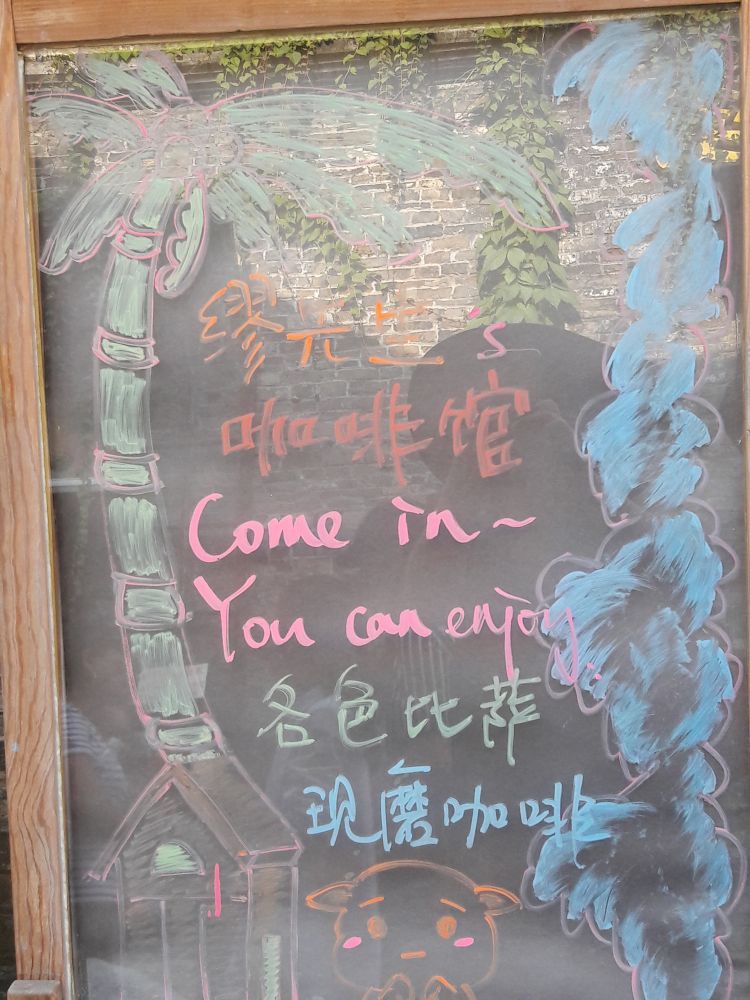 缪先生's
咖啡馆
Come in~
You can enjoy
各色比萨
现磨咖啡